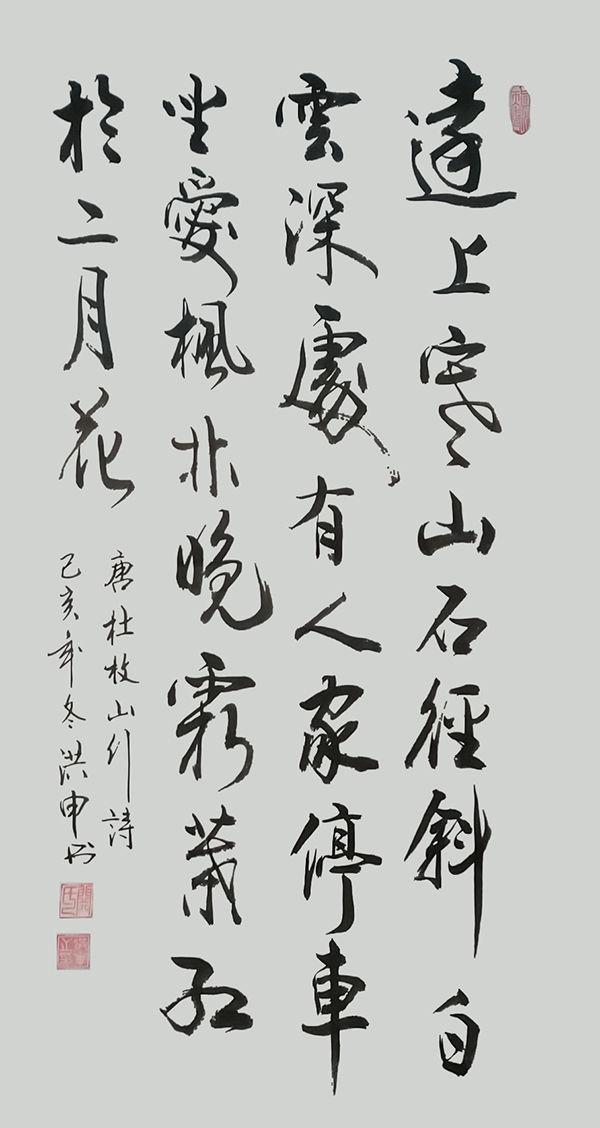 遠上寒山石徑斜白
雲深處有人家停車
坐愛楓林晚霜葉紅
於二月花
唐杜牧山行詩
己亥年冬洪申书